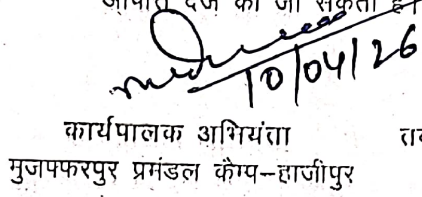 आपत्ति दर्ज की जा सकती है।
10/04/26
कार्यपालक अभियंता
मुजफ्फरपुर प्रमंडल कैम्प–हाजीपुर